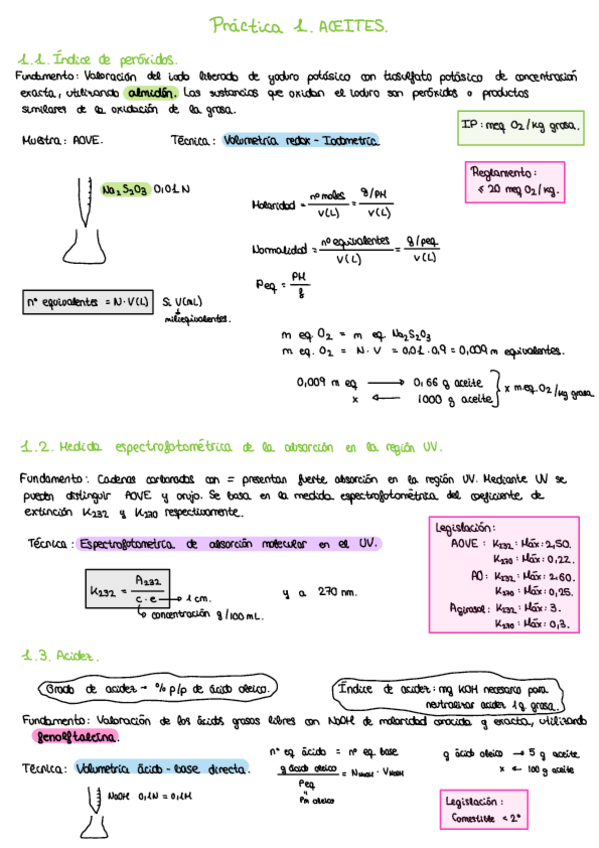 Práctica 1. ACEITES.
1.1. Índice de peróxidos.
Fundamento: Valoración del iodo liberado de yoduro potásico con tiosulfato potásico de concentración
exacta, utilizando almidón. Las sustancias que oxidan el ioduro son peróxidos o productos
similares de la oxidación de la grasa.
IP: meq O₂/kg grasa.
Muestra: AOVE.
Técnica: Volumetría redox - Iodometría
Reglamento:
≤ 20 meq O₂/kg.
Na₂S₂O₃ 0,01 N
Molaridad = nº moles / V(L) = g/PM / V(L)
Normalidad = nº equivalentes / V(L) = g/peq / V(L)
Peq = PM / g
nº equivalentes = N·V(L)
Si V(mL)
miliequivalentes.
m eq O₂ = m eq Na₂S₂O₃
m eq. O₂ = N · V = 0,01 · 0,9 = 0,009 m equivalentes.
0,009 m eq → 0,66 g aceite
x ← 1000 g aceite
x meq O₂/kg grasa
1.2. Medida espectrofotométrica de la absorción en la región UV.
Fundamento: Cadenas carbonadas con = presentan fuerte absorción en la región UV. Mediante UV se
pueden distinguir AOVE y orujo. Se basa en la medida espectrofotométrica del coeficiente de
extinción K₂₃₂ y K₂₇₀ respectivamente.
Técnica: Espectrofotometría de absorción molecular en el UV.
Legislación:
AOVE: K₂₃₂: Máx: 2,50.
K₂₇₀: Máx: 0,22.
AO: K₂₃₂: Máx: 2.60.
K₂₇₀: Máx: 0,25.
Agirasol: K₂₃₂: Máx: 3.
K₂₇₀: Máx: 0,3.
K₂₃₂ = A₂₃₂ / c · e → 1 cm.
y a 270 nm.
concentración g/100 mL.
1.3. Acidez.
Grado de acidez → % p/p de ácido oleico.
Índice de acidez: mg KOH necesario para
neutralizar acidez 1g grasa.
Fundamento: Valoración de los ácidos grasos libres con NaOH de molaridad conocida y exacta, utilizando
fenolftaleína.
Técnica: Volumetría ácido - base directa.
nº eq ácido = nº eq base
g ácido oleico / Peq = N NaOH · V NaOH
"
Pm oleico
g ácido oleico → 5 g aceite
x ← 100 g aceite
NaOH 0,1N = 0,1M
Legislación:
Comestible < 2°